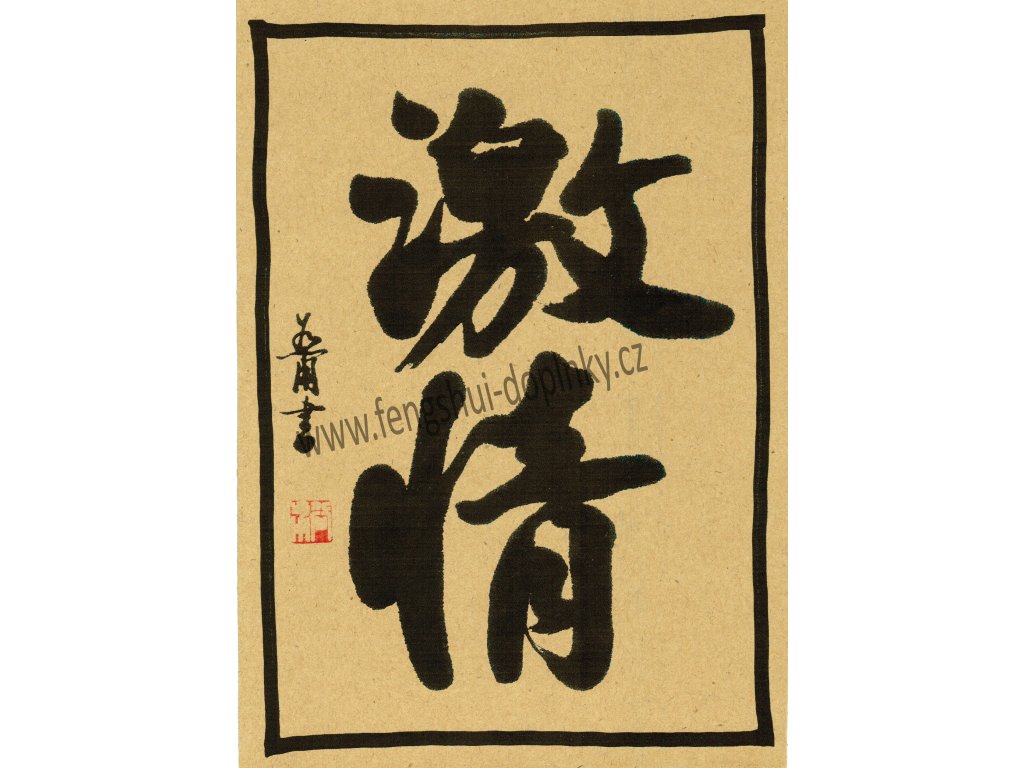 激
情
www.fengshui-doplnky.cz